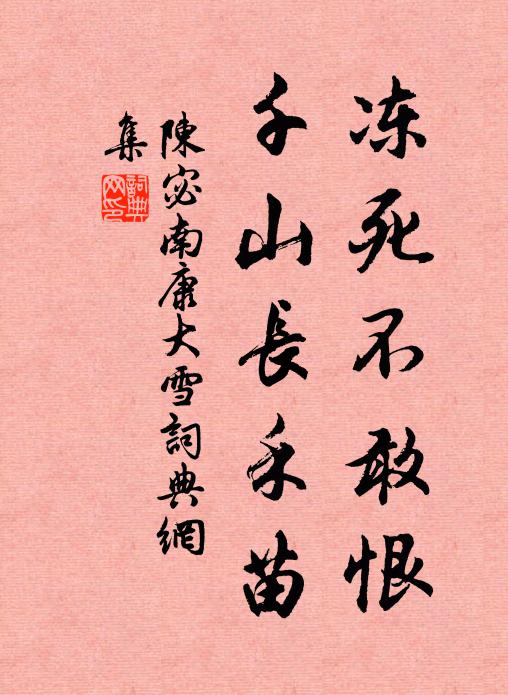 冻死不敢恨
千山長禾苗
陳宓南康大雪詞典網
集
詞典
网印